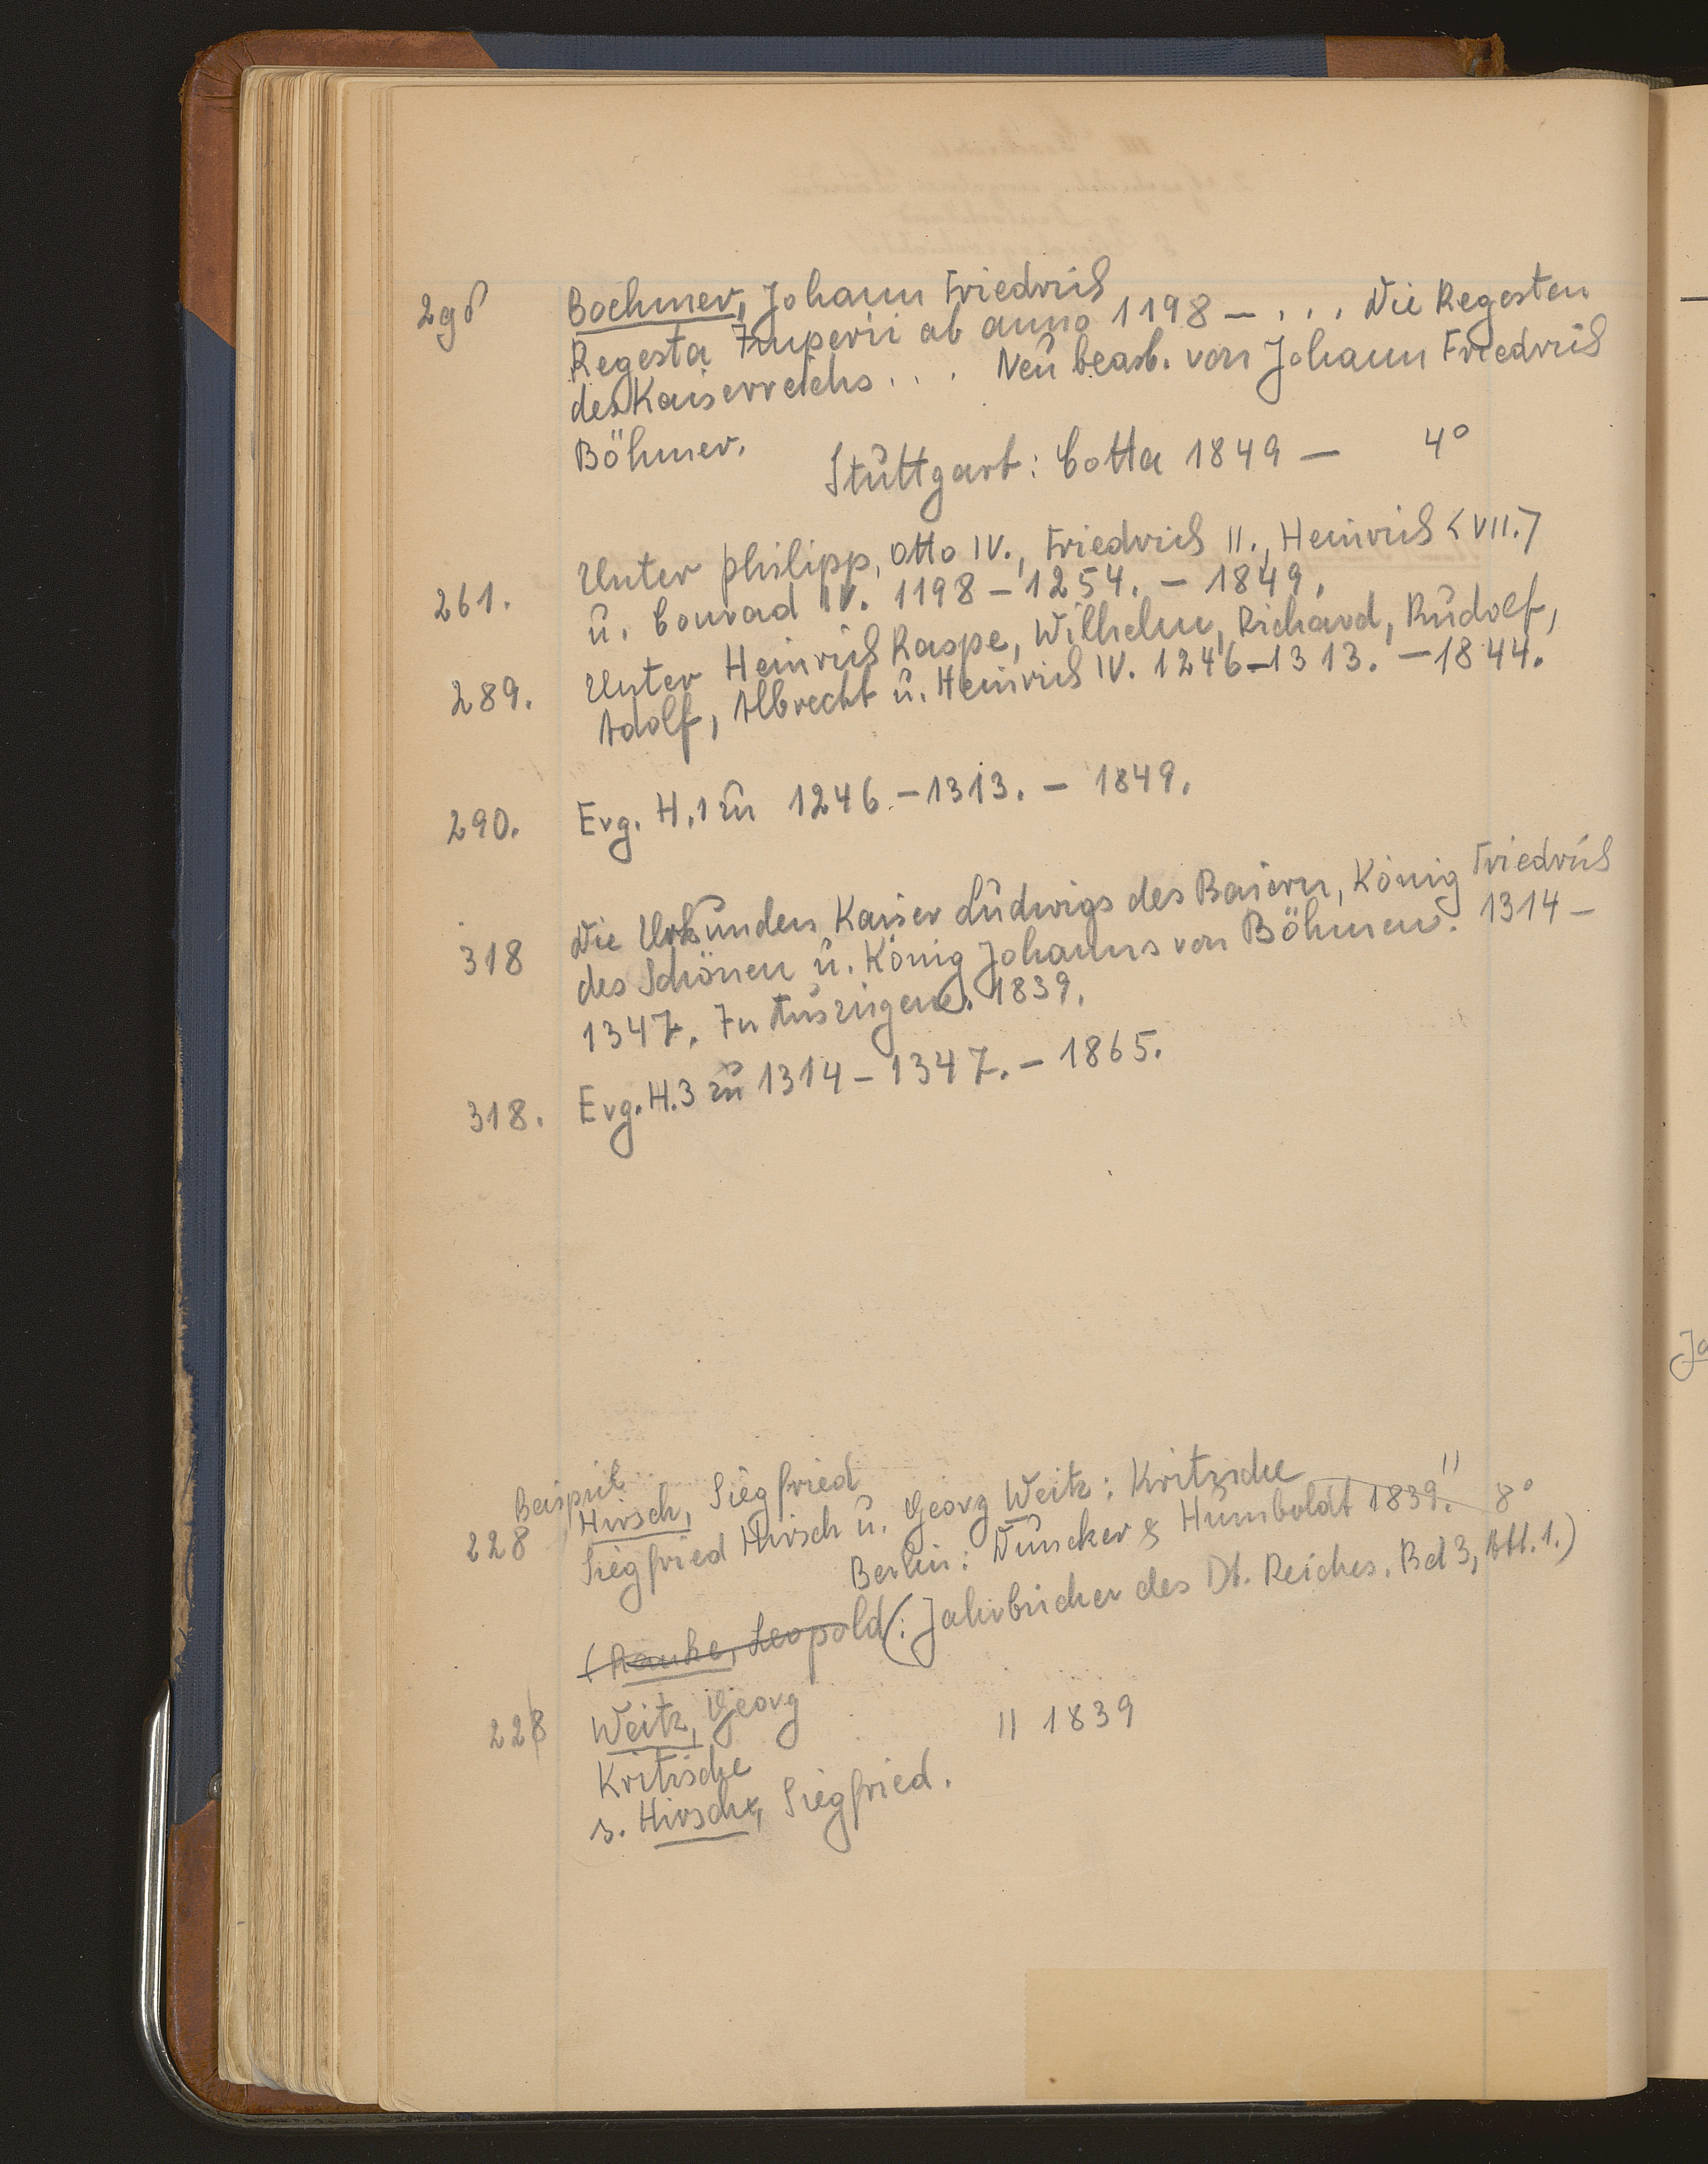 2gδ Boehmer, Johann Friedrich
Regesta Imperii ab anno 1198 – . . . Die Regesten
des Kaiserreichs . . . Neu bearb. von Johann Friedrich
Böhmer.
Stuttgart: Cotta 1849 – 4°
Unter Philipp, Otto IV., Friedrich II., Heinrich <VII.>
261. u. Conrad IV. 1198 – 1254. – 1849.
Unter Heinrich Raspe, Wilhelm, Richard, Rudolf,
289. Adolf, Albrecht u. Heinrich IV. 1246–1313. – 1844.
290. Erg. H. 1 zu 1246 – 1313. – 1849.
Die Urkunden Kaiser Ludwigs des Baiern, König Friedrich
318 des Schönen u. König Johanns von Böhmen. 1314 –
1347. In Auszügen. 1839.
318. Erg. H. 3 zu 1314 – 1347. – 1865.
Beispiel
228 Hirsch, Siegfried
Siegfried Hirsch u. Georg Weitz: Kritische
Berlin: Duncker & Humboldt 1839. 8°
(Ranke, Leopold (: Jahrbücher des Dt. Reiches. Bd 3, Abt. 1.)
228 Weitz, Georg
Kritische || 1839
s. Hirsch, Siegfried.
Ja